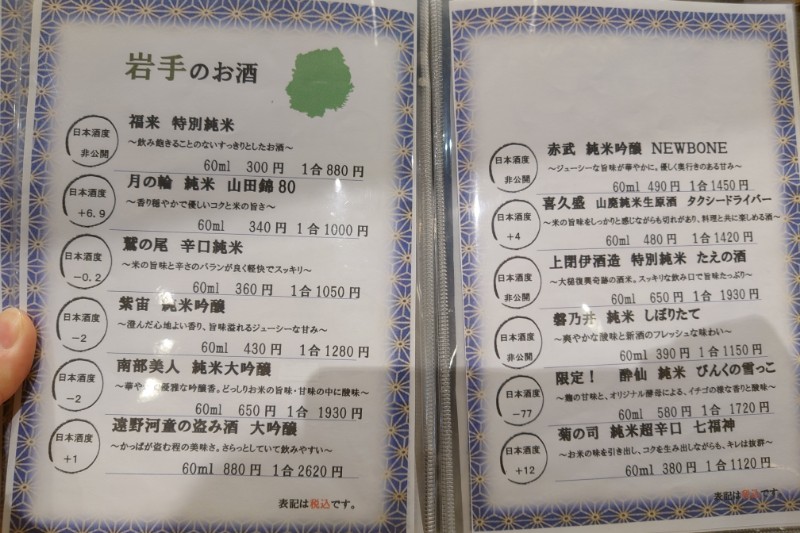 岩手のお酒
日本酒度 非公開
福来 特別純米
～飲み飽きることのないすっきりとしたお酒～
60ml 300円 1合880円
日本酒度 +6.9
月の輪 純米 山田錦80
～香り穏やかで優しいコクと米の旨さ～
60ml 340円 1合1000円
日本酒度 -0.2
鷲の尾 辛口純米
～米の旨味と辛さのバランが良く軽快でスッキリ～
60ml 360円 1合1050円
日本酒度 -2
紫宙 純米吟醸
～澄んだ心地よい香り、旨味溢れるジューシーな甘み～
60ml 430円 1合1280円
日本酒度 -2
南部美人 純米大吟醸
～華やかで優雅な吟醸香。どっしりお米の旨味・甘味の中に酸味～
60ml 650円 1合1930円
日本酒度 +1
遠野河童の盗み酒 大吟醸
～かっぱが盗む程の美味さ。さらっとしていて飲みやすい～
60ml 880円 1合2620円
表記は税込です。
日本酒度 非公開
赤武 純米吟醸 NEWBONE
～ジューシーな旨味が華やかに。優しく奥行きのある甘み～
60ml 490円 1合1450円
日本酒度 +4
喜久盛 山廃純米生原酒 タクシードライバー
～米の旨味をしっかりと感じながらも切れがあり、料理と共に楽しめる酒～
60ml 480円 1合1420円
日本酒度 非公開
上閉伊酒造 特別純米 たえの酒
～大槌復興奇跡の酒米。スッキリな飲み口で旨味たっぷり～
60ml 650円 1合 1930円
日本酒度 非公開
磐乃井 純米 しぼりたて
～爽やかな酸味と新酒のフレッシュな味わい～
60ml 390円 1合1150円
日本酒度 -77
限定！ 酔仙 純米 びんくの雪っこ
～麹の甘味と、オリジナル酵母による、イチゴの様な香りと酸味～
60ml 580円 1合 1720円
日本酒度 +12
菊の司 純米超辛口 七福神
～お米の味を引き出し、コクを生み出しながらも、キレは抜群～
60ml 380円 1合1120円
表記は税込です。